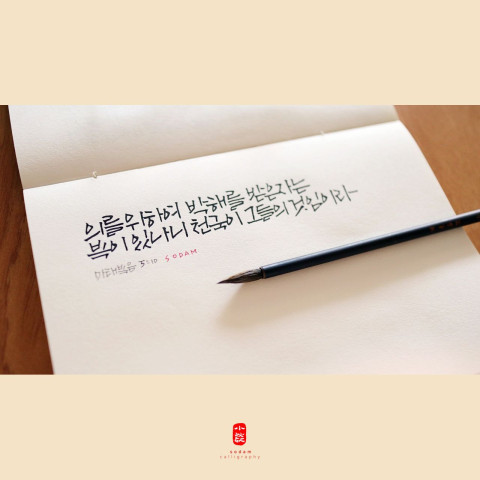 의를위하여 박해를 받은자는
복이 있나니 천국이 그들의 것임이라
마태복음 5:10 SODAM
sodam
calligraphy